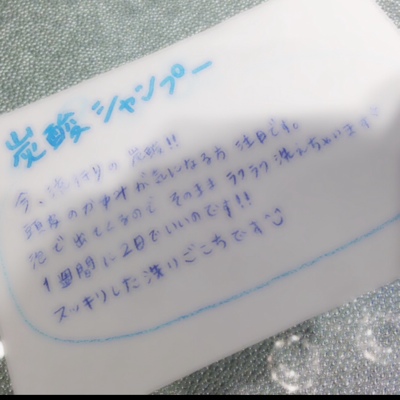 炭酸シャンプー
今、流行りの炭酸!!
頭皮のかゆみが気になる方 注目です。
泡で出てくるので そのまま ラクラク洗えちゃいます
1週間に2回でいいのです!!
スッキリした洗いごこちです